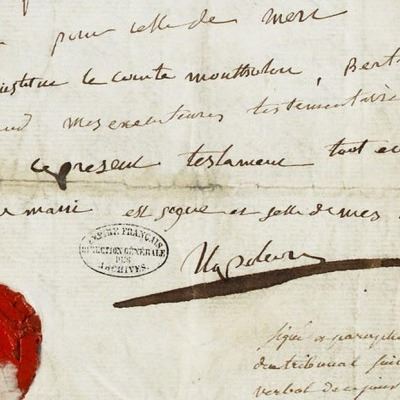 pour celle de mere
institue le comte montholon, Bert
mes executeures testementaire
ce present testament tout ec
main est signe et selle de mes
EMPIRE FRANÇAIS
DIRECTION GÉNÉRALE
DES
ARCHIVES.
Napoleon
signé et paraphé
du tribunal
verbal de ce jour